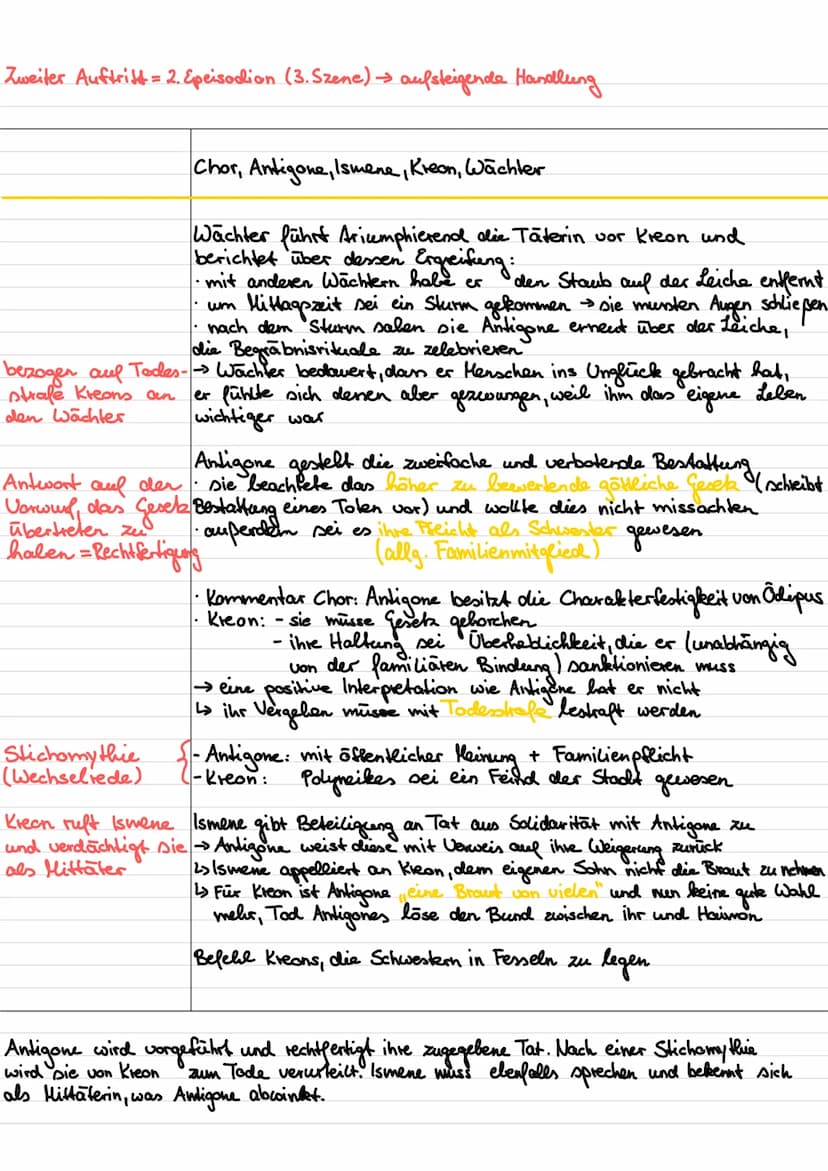 Zweiter Auftritt = 2. Epeisodion (3. Szene) → aufsteigende Handlung
Chor, Antigone, Ismene, Kreon, Wächter
Wächter führt triumphierend die Täterin vor Kreon und
berichtet über dessen Ergreifung:
· mit anderen Wächtern habe er den Staub auf der Leiche entfernt
· um Mittagszeit sei ein Sturm gekommen → sie mussten Augen schließen
· nach dem Sturm sahen sie Antigone erneut über der Leiche,
die Begräbnisrituale zu zelebrieren
bezogen auf Todes-
strafe Kreons an
den Wächter
→ Wächter bedauert, dass er Menschen ins Unglück gebracht hat,
er fühlte sich denen aber gezwungen, weil ihm das eigene Leben
wichtiger war
Antigone gesteht die zweifache und verbotende Bestattung
Antwort auf den
Vorwurf, das Gesetz
übertreten zu
haben = Rechtfertigung
· sie beachtete das höher zu bewertende göttliche Gesetz (schreibt
Bestattung eines Toten vor) und wollte dies nicht missachten
· außerdem sei es ihre Pflicht als Schwester gewesen
(allg. Familienmitglied)
· Kommentar Chor: Antigone besitzt die Charakterfestigkeit von Ödipus
· Kreon: - sie müsse Gesetz gehorchen
- ihre Haltung sei Überheblichkeit, die er (unabhängig
von der familiären Bindung) sanktionieren muss
→ eine positive Interpretation wie Antigone hat er nicht
↳ ihr Vergehen müsse mit Todesstrafe bestraft werden
Stichomythie
(Wechselrede)
- Antigone: mit öffentlicher Meinung + Familienpflicht
- Kreon: Polyneikes sei ein Feind der Stadt gewesen
Kreon ruft Ismene
und verdächtigt sie
als Mittäter
Ismene gibt Beteiligung an Tat aus Solidarität mit Antigone zu
→ Antigone weist diese mit Verweis auf ihre Weigerung zurück
↳ Ismene appelliert an Kreon, dem eigenen Sohn nicht die Braut zu nehmen
↳ Für Kreon ist Antigone „eine Braut von vielen" und nun keine gute Wahl
mehr, Tod Antigones löse den Bund zwischen ihr und Haimon
Befehl Kreons, die Schwestern in Fesseln zu legen
Antigone wird vorgeführt und rechtfertigt ihre zugegebene Tat. Nach einer Stichomythie
wird sie von Kreon zum Tode verurteilt. Ismene muss ebenfalls sprechen und bekennt sich
als Mittäterin, was Antigone abwinkt.